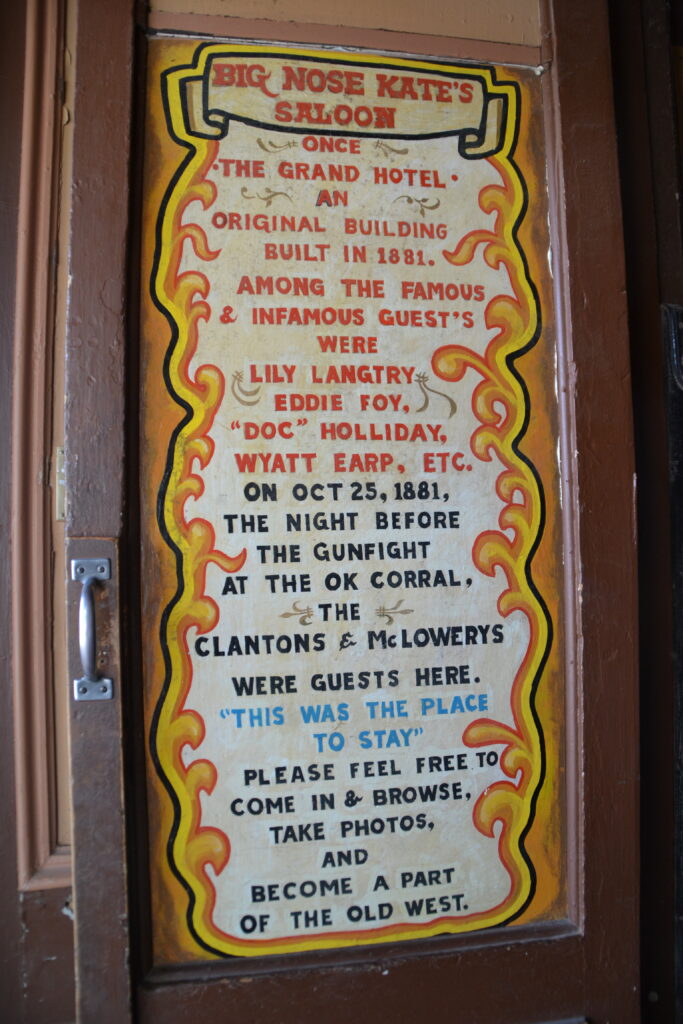 BIG NOSE KATE'S
SALOON
ONCE
·THE GRAND HOTEL·
AN
ORIGINAL BUILDING
BUILT IN 1881.
AMONG THE FAMOUS
& INFAMOUS GUEST'S
WERE
LILY LANGTRY
EDDIE FOY,
"DOC" HOLLIDAY,
WYATT EARP, ETC.
ON OCT 25, 1881,
THE NIGHT BEFORE
THE GUNFIGHT
AT THE OK CORRAL,
THE
CLANTONS & McLOWERYS
WERE GUESTS HERE.
"THIS WAS THE PLACE
TO STAY"
PLEASE FEEL FREE TO
COME IN & BROWSE,
TAKE PHOTOS,
AND
BECOME A PART
OF THE OLD WEST.